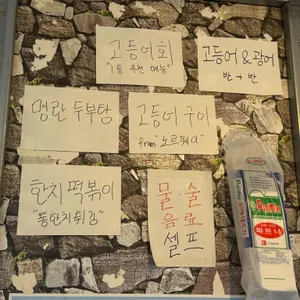 고등어회
"1등 추천 메뉴"
고등어 & 광어
반 + 반
명란 두부탕
고등어 구이
from "노르웨이"
한치 떡볶이
"통한치튀김"
물·술
음료
셀프
파트너